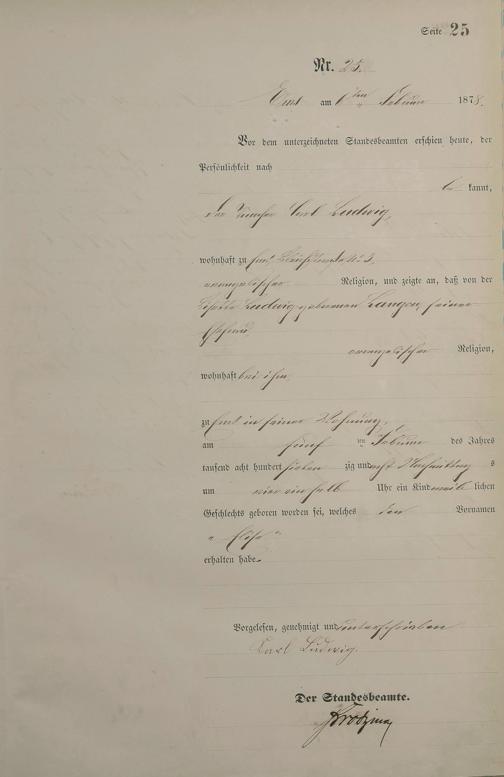 Seite 25
Nr. 25.
Ems am 6ten Februar 1878.
Vor dem unterzeichneten Standesbeamten erschien heute, der
Persönlichkeit nach
be kannt,
der Carl Ludwig,
wohnhaft zu Ems,
evangelischer Religion, und zeigte an, daß von der
Ludwig geborenen Langen, seiner
Ehefrau,
evangelischer Religion,
wohnhaft bei ihm,
zu Ems in seiner Wohnung,
am fünf ten Februar des Jahres
tausend acht hundert sieben zig und acht Nachmittag s
um vier ein halb Uhr ein Kind weib lichen
Geschlechts geboren worden sei, welches den Vornamen
erhalten habe.
Vorgelesen, genehmigt und unterschrieben
Carl Ludwig.
Der Standesbeamte.